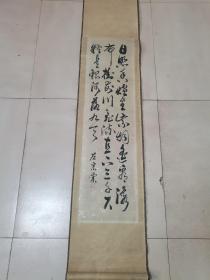 日照香爐生紫烟遙看瀑
布掛前川飛流直下三千尺
疑是銀河落九天
左宗棠